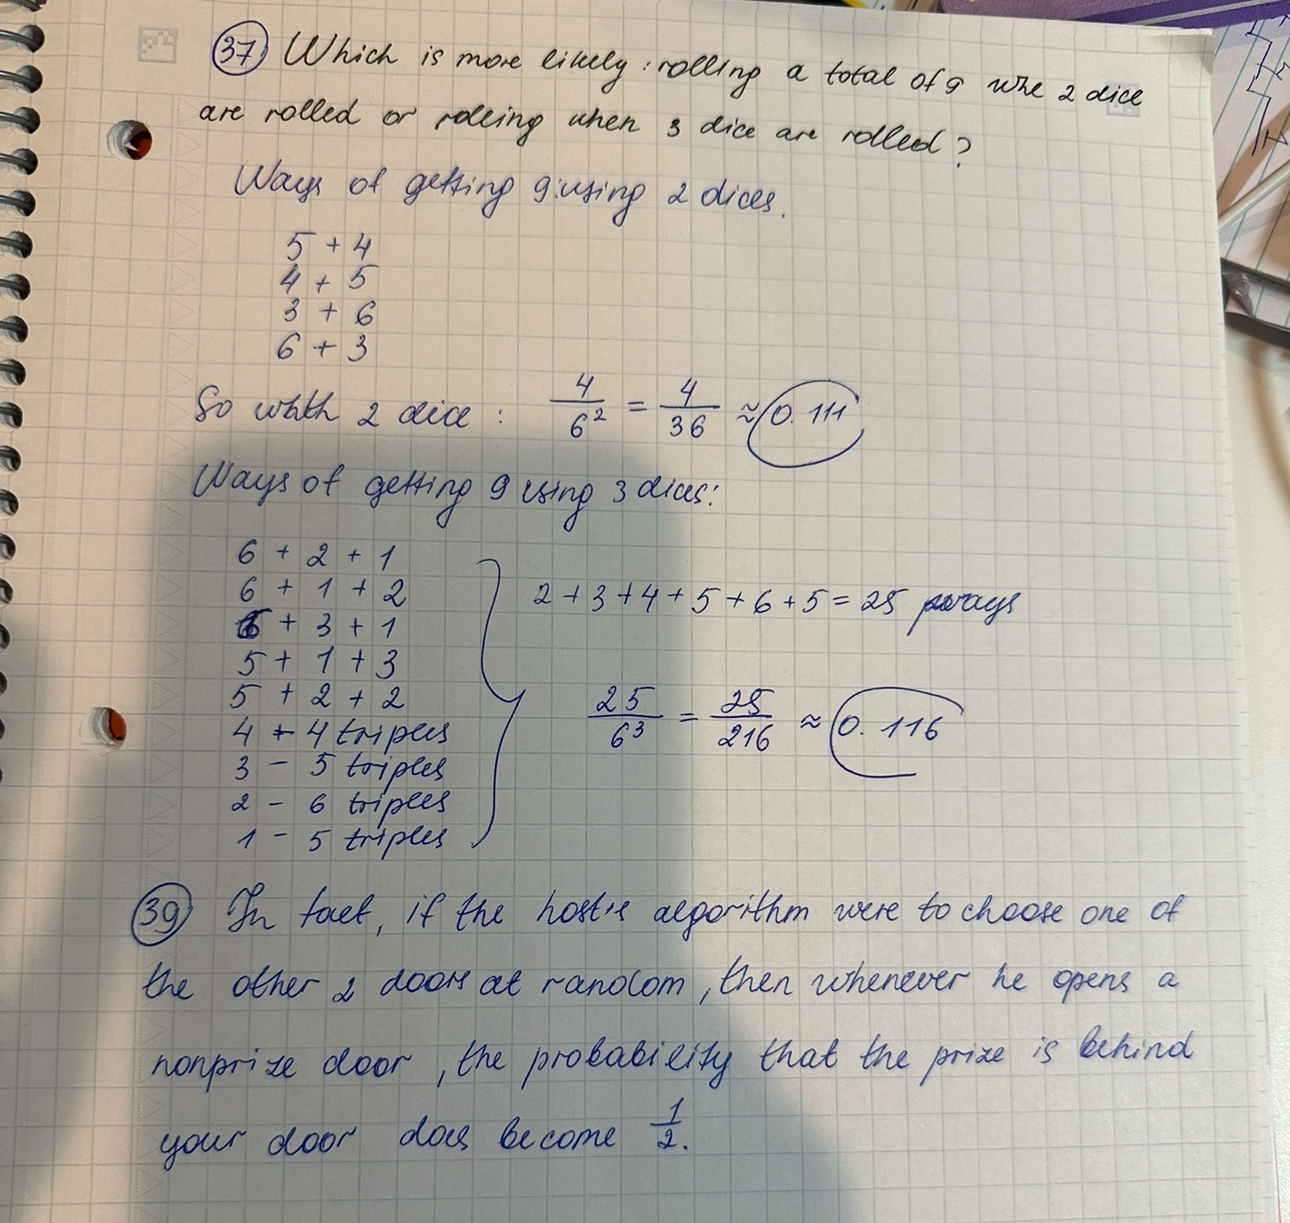 37 Which is more likely: rolling a total of 9 whe 2 dice
are rolled or rolling when 3 dice are rolled?
Ways of getting 9 using 2 dices.
5 + 4
4 + 5
3 + 6
6 + 3
So with 2 dice : 4/6² = 4/36 ≈ 0.111
Ways of getting 9 using 3 dices:
6 + 2 + 1
6 + 1 + 2
5 + 3 + 1
5 + 1 + 3
5 + 2 + 2
4 - 4 triples
3 - 5 triples
2 - 6 triples
1 - 5 triples
2 + 3 + 4 + 5 + 6 + 5 = 25 ways
25/6³ = 25/216 ≈ 0.116
39 In fact, if the host's algorithm were to choose one of
the other 2 doors at random, then whenever he opens a
nonprize door, the probability that the prize is behind
your door does become 1/2.